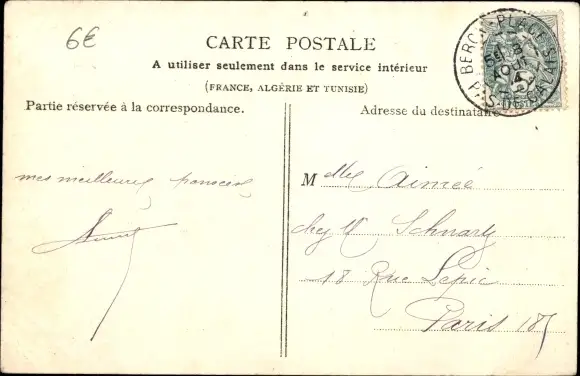 6€
CARTE POSTALE
A utiliser seulement dans le service intérieur
(FRANCE, ALGÉRIE ET TUNISIE)
Partie réservée à la correspondance.
Adresse du destinataire
BERCK-PLAGE
PAS-DE-CALAIS
AOUT
mes meilleures pensées
M elle Aimée
chez Mr
18 Rue Lepic
Paris 18e